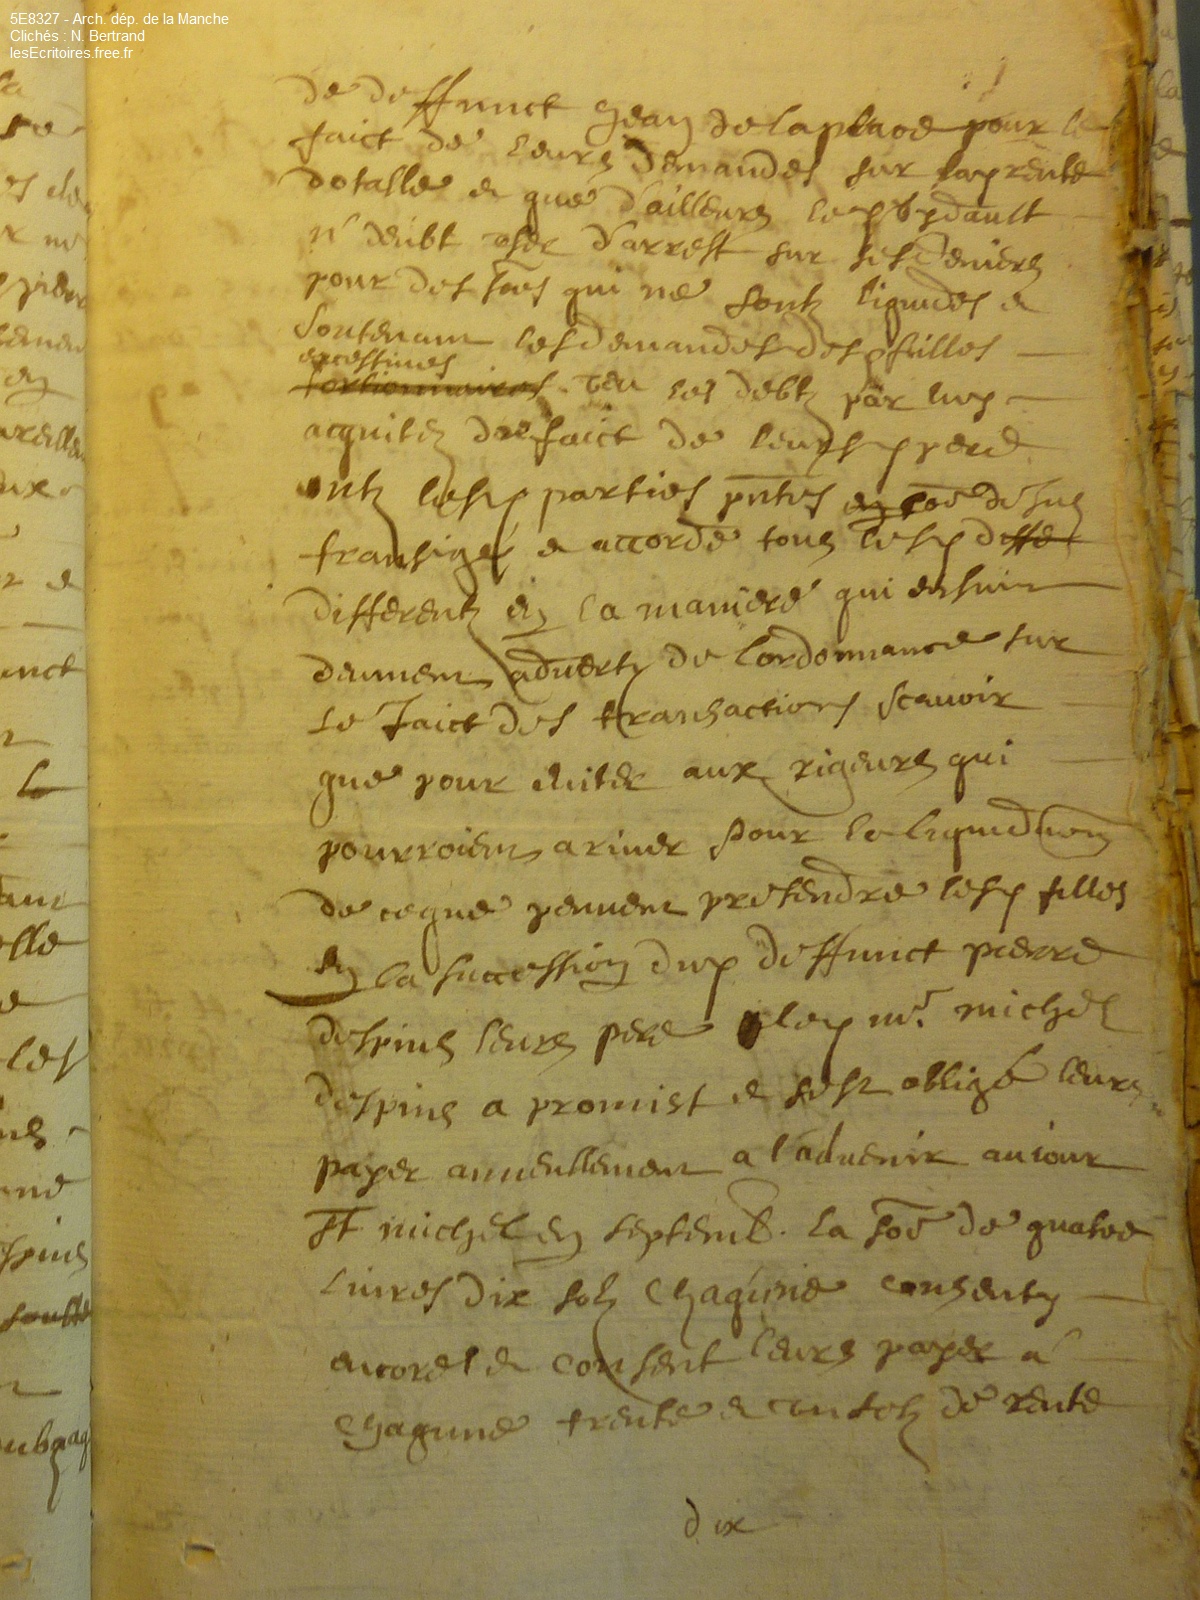 5E8327 - Arch. dép. de la Manche
Clichés : N. Bertrand
lesEcritoires.free.fr
de deffunct Jean delaplace pour le
faict de leurs demandes sur lad rente
dotalle et que d'ailleurs led
n' deubt user d'arrest sur ses deniers
pour des soes qui ne sont liquides et
soutenant les demandes desd filles
excessiues
tortionnaires veu les debtz par luy
acquitez du faict de leursd pere
ont lesd parties pntes en soe desus
transigé et accordé tous lesd diffe
differentz en la maniere qui ensuit
deument aduerty de lordonnance sur
le faict des transactions scauoir
que pour euiter aux rigeurs qui
pourroient ariuer pour la liquidaon
de ceque peuuent pretendre lesd filles
en la succession dud deffunct pierre
despins leurs pere led mr. michel
despins a promist et sest obligé leurs
payer annuellement a l'aduenir au iour
st michel en septemb. la soe de quatre
liures dix solz chaqune consenty
encores et consent leurs payer a
chaqune trente et un solz de rente
dix